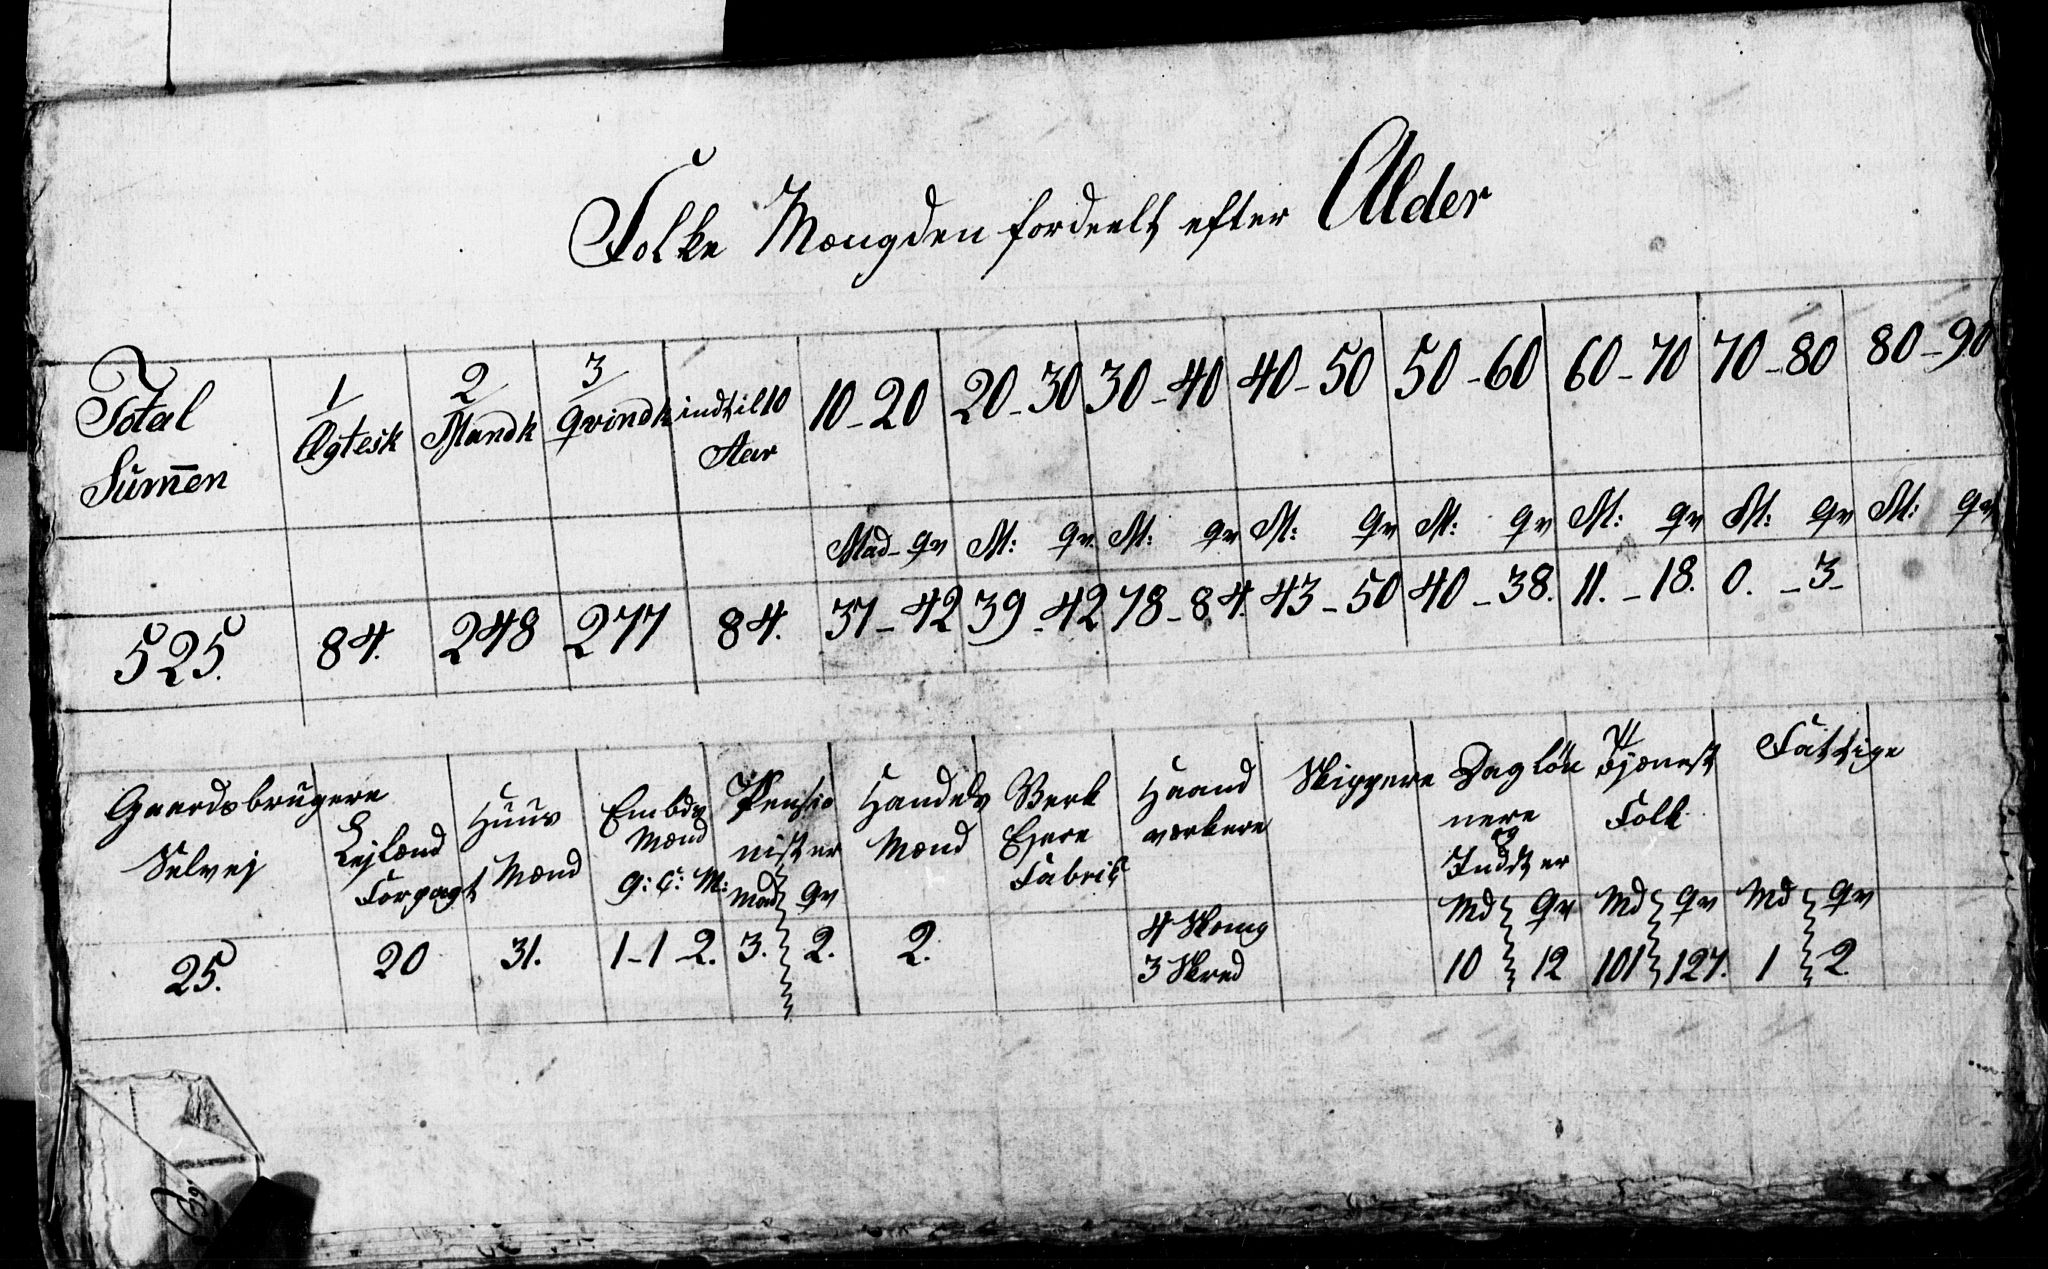 Folke Mængden fordeelt efter Alder
Total Sum̄en | 1 Ægtesk | 2 Mandk | 3 Qvindk | indtil 10 Aar | 10–20 | 20–30 | 30–40 | 40–50 | 50–60 | 60–70 | 70–80 | 80–90
Mad– Qv | M: Qv | M: Qv | M: Qv | M: Qv | M: Qv | M: Qv | M: Qv
525. | 84. | 248 | 277 | 84. | 37–42 | 39–42 | 78–84. | 43–50 | 40–38. | 11.–18. | 0.–3–
Gaardsbrugere Selvej | Lejlænd Forpagt | Huus Mænd | Embds Mænd g: C: M: | Pensionister Mad Qv | Handels Mænd | Verk Ejere Fabriq | Haandværkere | Skippere | Dagløn nere og Indst er Md Qv | Tjenest Folk Md Qv | Fattige Md Qv
25. | 20 | 31. | 1–1–2. | 3. 2. | 2. | | 4 Skomg 3 Skred | | 10 12 | 101 127. | 1 2